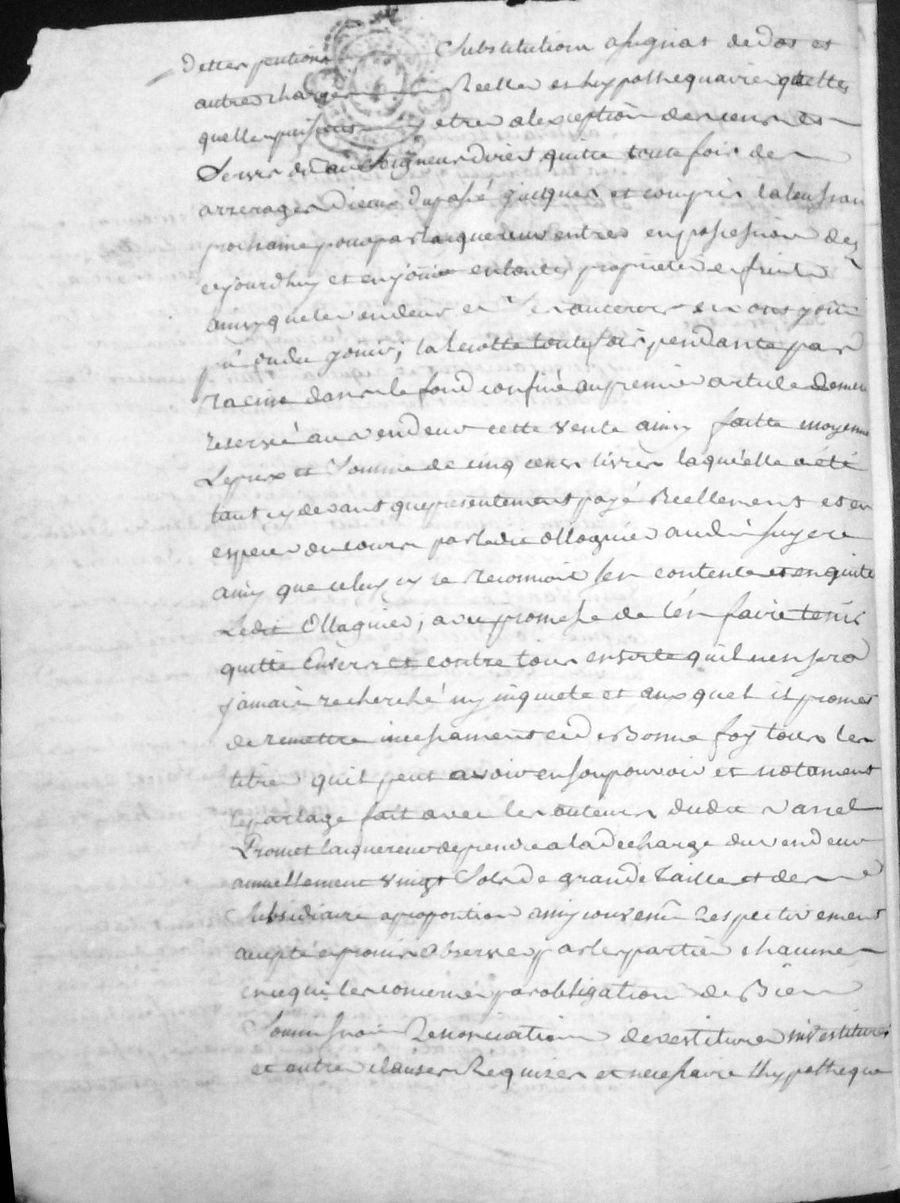 dettes pentions Substitution assignat de dot et
autres charges Reelles et hypothequaires quelles
quelles puissent etre a lexception des cens et
Servis dû au Seigneur direct quitte toutefois de
arrerages d'iceux du passé jusques et compris
prochaine pour par lacquereur entrer en possession dès
cejourdhuy et en jouir en toute proprieté et fruits
ainsy que le vendeur et Ses auteurs en ont jouit
pû ou du jouir, la recolte toutefois pendante par
racine dans le fond confiné au premier article demeure
reservé au vendeur cette vente ainsy faitte moyennant
Le prix et Somme de cinq cents livres laquelle a été
tant cy devant que presentement payé Reellement et en
espece du cours par ledit Ollagnier audit
ainsy que celuy cy le reconnoit sen contente et en quitte
Ledit Ollagnier, avec promesse de l'en faire tenir
quitte Envers et contre tous ensorte quil n'en sera
jamais recherché ny inquieté et auquel il promet
de remettre incessament et de Bonne foy tous les
titres quil peut avoir en son pouvoir et notament
le partage fait avec les auteurs dudit
Promet lacquereur de prendre a la decharge du vendeur
annuellement vingt Sols de grande Taille et de
Subsidiaire a proportion ainsy convenû Respectivement
accepté et promis observer par les parties chacune
en ce qui les concerne par obligation de Biens
Soumission Renonciation devestiture investiture
et autres clauses Requises et necessaires hypotheque